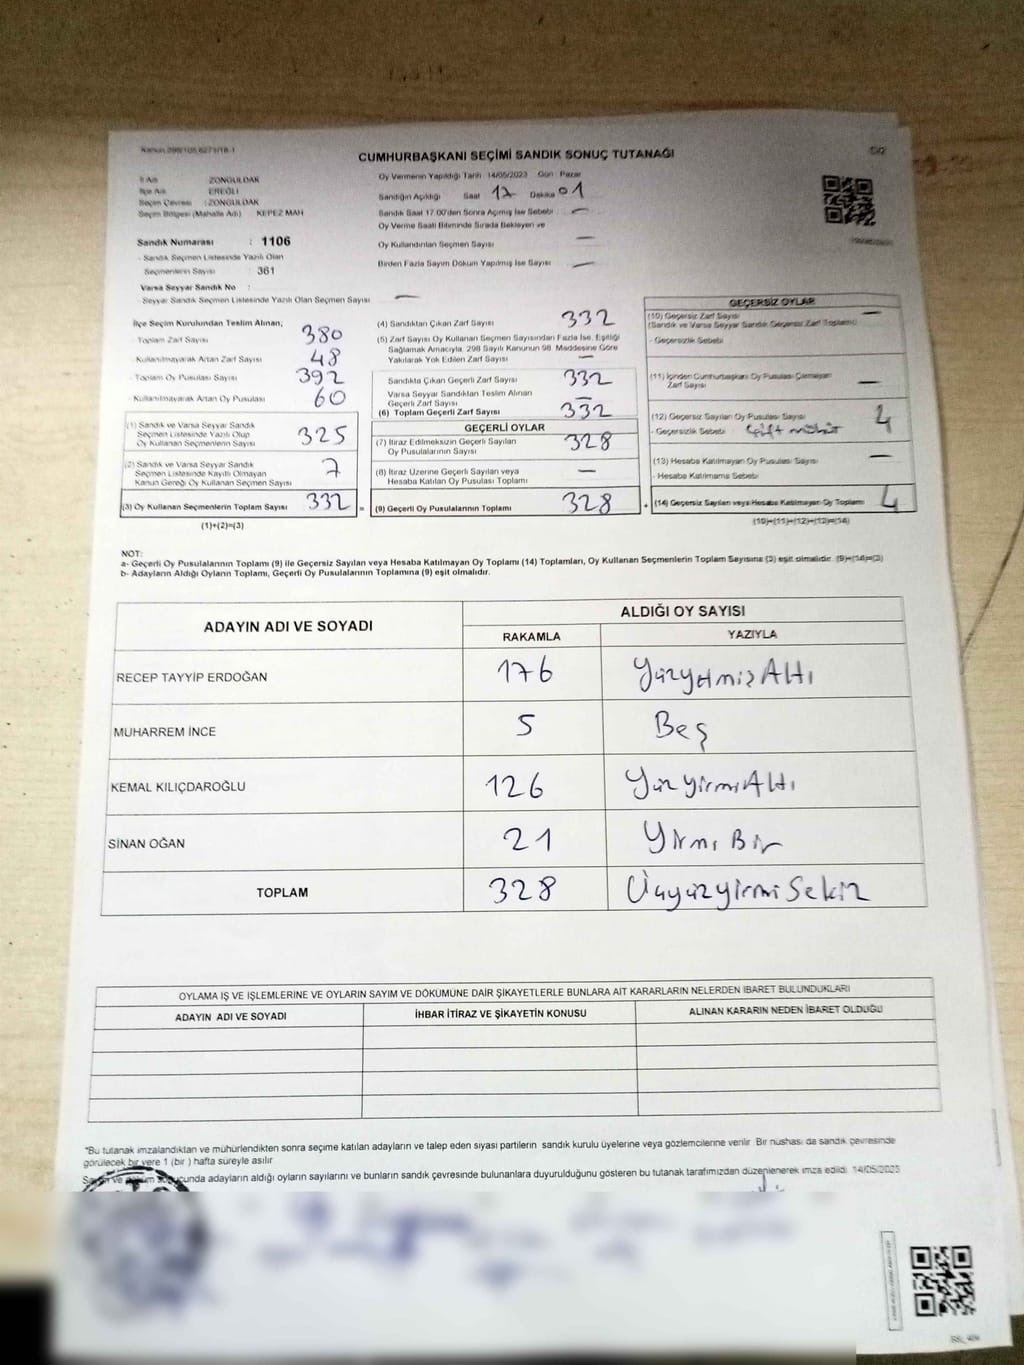 CUMHURBAŞKANI SEÇİMİ SANDIK SONUÇ TUTANAĞI
İl Adı : ZONGULDAK
İlçe Adı : EREĞLİ
Seçim Çevresi : ZONGULDAK
Seçim Bölgesi (Mahalle Adı) KEPEZ MAH
Sandık Numarası : 1106
- Sandık Seçmen Listesinde Yazılı Olan
Seçmenlerin Sayısı : 361
Varsa Seyyar Sandık No :
- Seyyar Sandık Seçmen Listesinde Yazılı Olan Seçmen Sayısı —
Oy Vermenin Yapıldığı Tarih 14/05/2023 Gün Pazar
Sandığın Açıldığı Saat 17 Dakika 01
Sandık Saat 17.00'den Sonra Açımış İse Sebebi : —
Oy Verme Saati Bitiminde Sırada Bekleyen ve
Oy Kullandırılan Seçmen Sayısı —
Birden Fazla Sayım Döküm Yapılmış İse Sayısı —
İlçe Seçim Kurulundan Teslim Alınan;
- Toplam Zarf Sayısı 380
- Kullanılmayarak Artan Zarf Sayısı 48
- Toplam Oy Pusulası Sayısı 392
- Kullanılmayarak Artan Oy Pusulası 60
(1) Sandık ve Varsa Seyyar Sandık
Seçmen Listesinde Yazılı Olup
Oy Kullanan Seçmenlerin Sayısı 325
(2) Sandık ve Varsa Seyyar Sandık
Seçmen Listesinde Kayıtlı Olmayan
Kanun Gereği Oy Kullanan Seçmen Sayısı 7
(3) Oy Kullanan Seçmenlerin Toplam Sayısı 332 =
(1)+(2)=(3)
(4) Sandıktan Çıkan Zarf Sayısı 332
(5) Zarf Sayısı Oy Kullanan Seçmen Sayısından Fazla İse, Eşitliği
Sağlamak Amacıyla, 298 Sayılı Kanunun 98. Maddesine Göre
Yakılarak Yok Edilen Zarf Sayısı —
Sandıkta Çıkan Geçerli Zarf Sayısı 332
Varsa Seyyar Sandıktan Teslim Alınan
Geçerli Zarf Sayısı —
(6) Toplam Geçerli Zarf Sayısı 332
GEÇERLİ OYLAR
(7) İtiraz Edilmeksizin Geçerli Sayılan
Oy Pusulalarının Sayısı 328
(8) İtiraz Üzerine Geçerli Sayılan veya
Hesaba Katılan Oy Pusulası Toplamı —
(9) Geçerli Oy Pusulalarının Toplamı 328 +
GEÇERSİZ OYLAR
(10) Geçersiz Zarf Sayısı —
(Sandık ve Varsa Seyyar Sandık Geçersiz Zarf Toplamı)
- Geçersizlik Sebebi
(11) İçinden Cumhurbaşkanı Oy Pusulası Çıkmayan
Zarf Sayısı —
(12) Geçersiz Sayılan Oy Pusulası Sayısı 4
- Geçersizlik Sebebi Çift mühür
(13) Hesaba Katılmayan Oy Pusulası Sayısı —
- Hesaba Katılmama Sebebi
(14) Geçersiz Sayılan veya Hesaba Katılmayan Oy Toplamı 4
(10)+(11)+(12)+(13)=(14)
NOT:
a- Geçerli Oy Pusulalarının Toplamı (9) ile Geçersiz Sayılan veya Hesaba Katılmayan Oy Toplamı (14) Toplamları, Oy Kullanan Seçmenlerin Toplam Sayısına (3) eşit olmalıdır. (9)+(14)=(3)
b- Adayların Aldığı Oyların Toplamı, Geçerli Oy Pusulalarının Toplamına (9) eşit olmalıdır.
ADAYIN ADI VE SOYADI ALDIĞI OY SAYISI
RAKAMLA YAZIYLA
RECEP TAYYİP ERDOĞAN 176 YüzyetmişAltı
MUHARREM İNCE 5 Beş
KEMAL KILIÇDAROĞLU 126 YüzyirmiAltı
SİNAN OĞAN 21 Yirmi Bir
TOPLAM 328 ÜçyüzyirmiSekiz
OYLAMA İŞ VE İŞLEMLERİNE VE OYLARIN SAYIM VE DÖKÜMÜNE DAİR ŞİKAYETLERLE BUNLARA AİT KARARLARIN NELERDEN İBARET BULUNDUKLARI
ADAYIN ADI VE SOYADI İHBAR İTİRAZ VE ŞİKAYETİN KONUSU ALINAN KARARIN NEDEN İBARET OLDUĞU
*Bu tutanak imzalandıktan ve mühürlendikten sonra seçime katılan adayların ve talep eden siyasi partilerin sandık kurulu üyelerine veya gözlemcilerine verilir. Bir nüshası da sandık çevresinde
görülecek bir yere 1 (bir ) hafta süreyle asılır
Sayım ve döküm sonucunda adayların aldığı oyların sayılarını ve bunların sandık çevresinde bulunanlara duyurulduğunu gösteren bu tutanak tarafımızdan düzenlenerek imza edildi. 14/05/2023